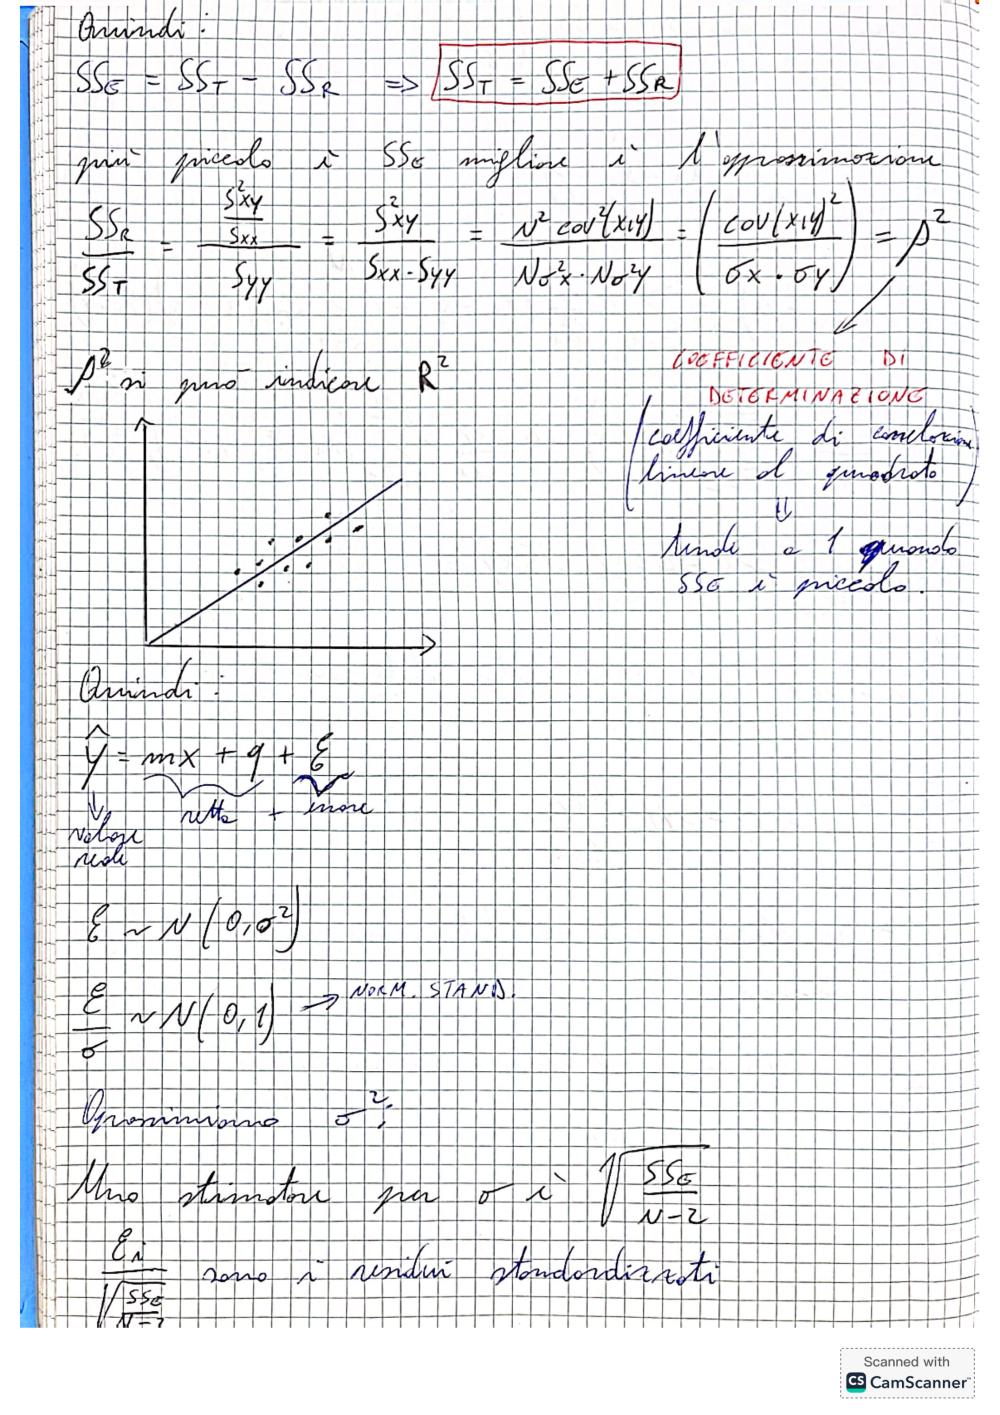 Quindi:
SSE = SST - SSR => SST = SSE + SSR
più piccolo è SSE migliore è l'approssimazione
SSR/SST = (S²xy/Sxx)/Syy = S²xy/(Sxx·Syy) = N² cov²(x,y)/(Nσ²x·Nσ²y) = (cov(x,y)/(σx·σy))² = ρ²
COEFFICIENTE DI
DETERMINAZIONE
ρ² si può indicare R²
(coefficiente di correlazione
lineare al quadrato)
⇓
tende a 1 quando
SSE è piccolo.
Quindi:
ŷ = mx + q + ε
retta + errore
valore
reale
ε ~ N(0,σ²)
ε/σ ~ N(0,1) → NORM. STAND.
Approssimiamo σ²:
Uno stimatore per σ è √(SSE/(N-2))
εi/√(SSE/(N-2)) sono i residui standardizzati
Scanned with
CS CamScanner